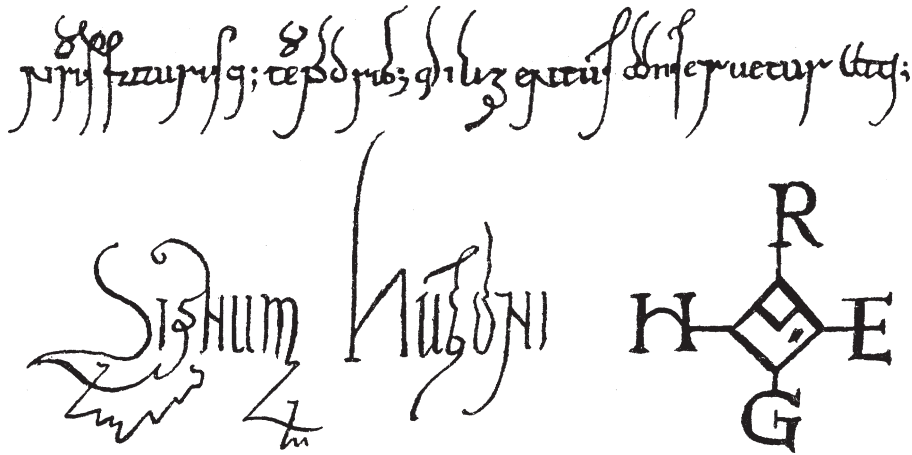 nr̄is futurisq; tēporib; diligentius conseruetur
Signum Hugoni
R
H E
G